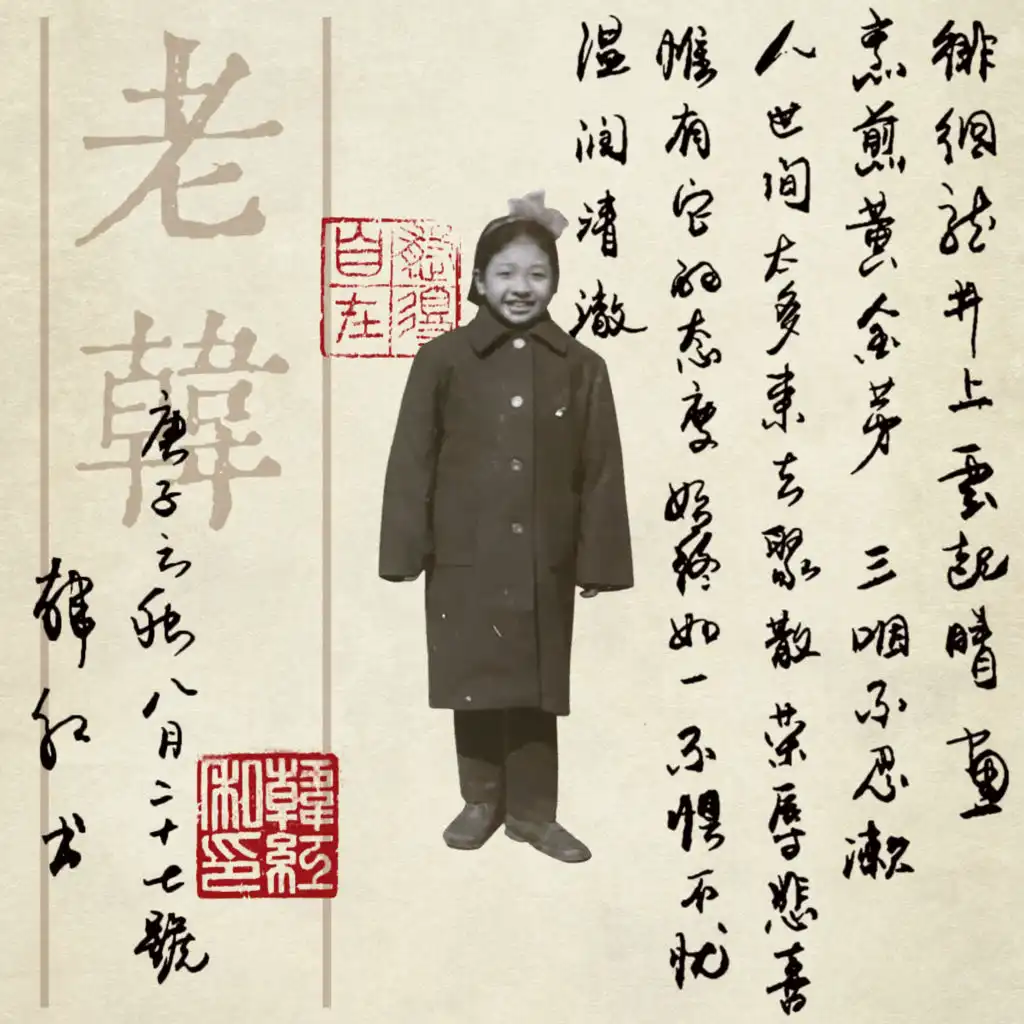 徘徊龙井上雲起晴画
烹煎黄金芽 三咽不忍漱
人世间太多来去聚散荣辱悲喜
惟有它的态度始终如一不惧不忧
温润清澈
得
自在
老韓
庚子之秋八月二十七號
韩红书
韓紅
私印